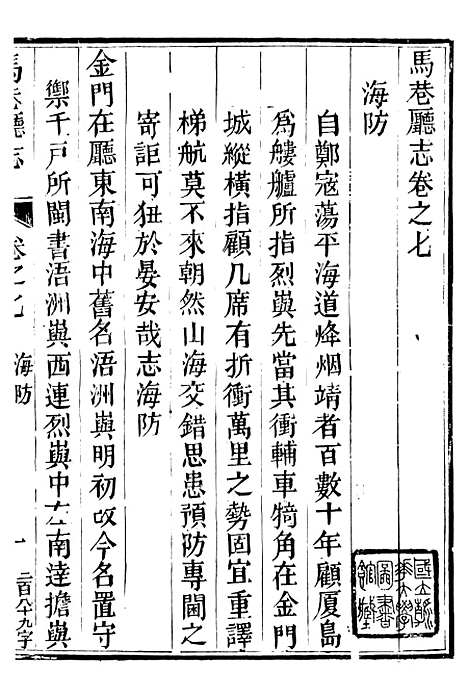 馬巷廳志卷之七
海防
自鄭寇蕩平海道烽烟靖者百數十年顧厦島
為艛艫所指烈嶼先當其衝輔車犄角在金門
城縱橫指顧几席有折衝萬里之勢固宜重譯
梯航莫不來朝然山海交錯思患預防專閫之
寄詎可狃於晏安哉志海防
金門在廳東南海中舊名浯洲嶼明初改今名置守
禦千戶所閩書浯洲嶼西連烈嶼中左南達擔嶼
馬巷廳志
卷之七
海防
一
二百八十九字